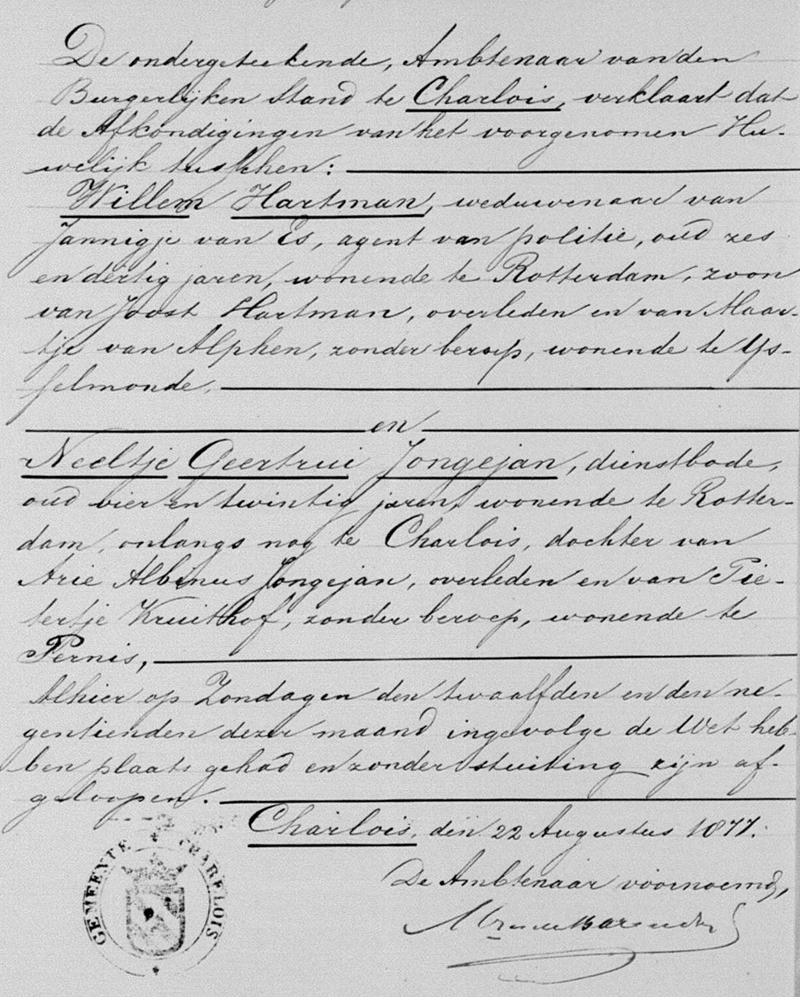 De ondergeteekende, Ambtenaar van den
Burgerlijken Stand te Charlois, verklaart dat
de Afkondigingen van het voorgenomen Hu-
welijk tusschen:
Willem Hartman, weduwenaar van
Jannigje van Es, agent van politie, oud zes
en dertig jaren, wonende te Rotterdam, zoon
van Joost Hartman, overleden en van Maar-
tje van Alphen, zonder beroep, wonende te Ys-
selmonde.
en
Neeltje Geertrui Jongejan, dienstbode,
oud vier en twintig jaren, wonende te Rotter-
dam, onlangs nog te Charlois, dochter van
Arie Albinus Jongejan, overleden en van Pie-
tertje Kruithof, zonder beroep, wonende te
Pernis,
Alhier op Zondagen den twaalfden en den ne-
gentienden dezer maand ingevolge de Wet heb-
ben plaats gehad en zonder stuiting zijn af-
geloopen.
Charlois, den 22 Augustus 1877.
De Ambtenaar voornoemd,
GEMEENTE CHARELOIS